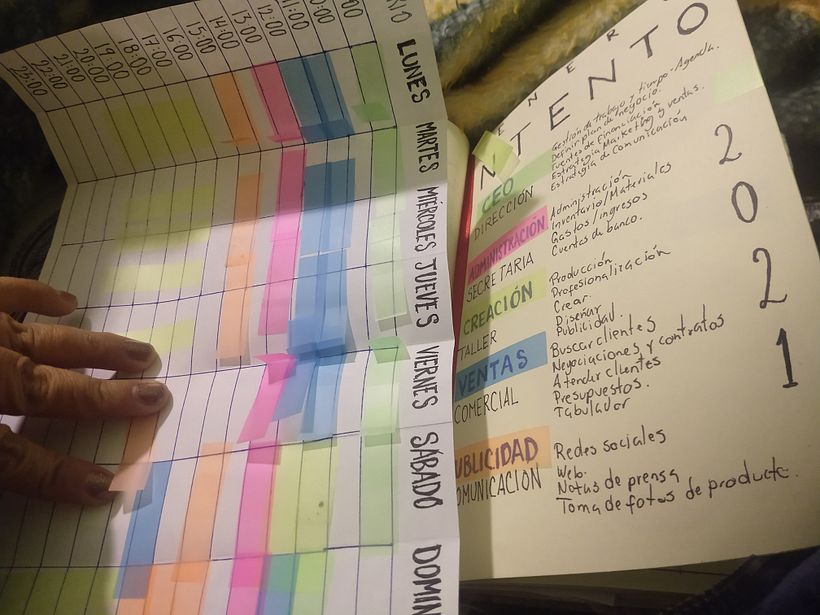 RIO
LUNES
MARTES
MIÉRCOLES
JUEVES
VIERNES
SÁBADO
DOMIN
00
:00
11:00
12:00
13:00
14:00
15:00
16:00
17:00
18:00
19:00
20:00
21:00
22:00
23:00
ENER
NTENTO
2021
CEO
DIRECCIÓN
Gestión de trabajo y tiempo-Agenda.
Definir plan de negocio.
Fuentes de Financiación
Estrategia Marketing y ventas.
Estrategia de Comunicación
ADMINISTRACIÓN
SECRETARIA
Administración
Inventario/Materiales
Gastos/ingresos
Cuentas de banco.
CREACIÓN
TALLER
Producción
Profesionalización
Crear.
Diseñar
Publicidad.
VENTAS
COMERCIAL
Buscar clientes
Negociaciones y contratos
Atender clientes
Presupuestos.
Tabulador
UBLICIDAD
OMUNICACIÓN
Redes sociales
Web.
Notas de prensa
Toma de fotos de producto.